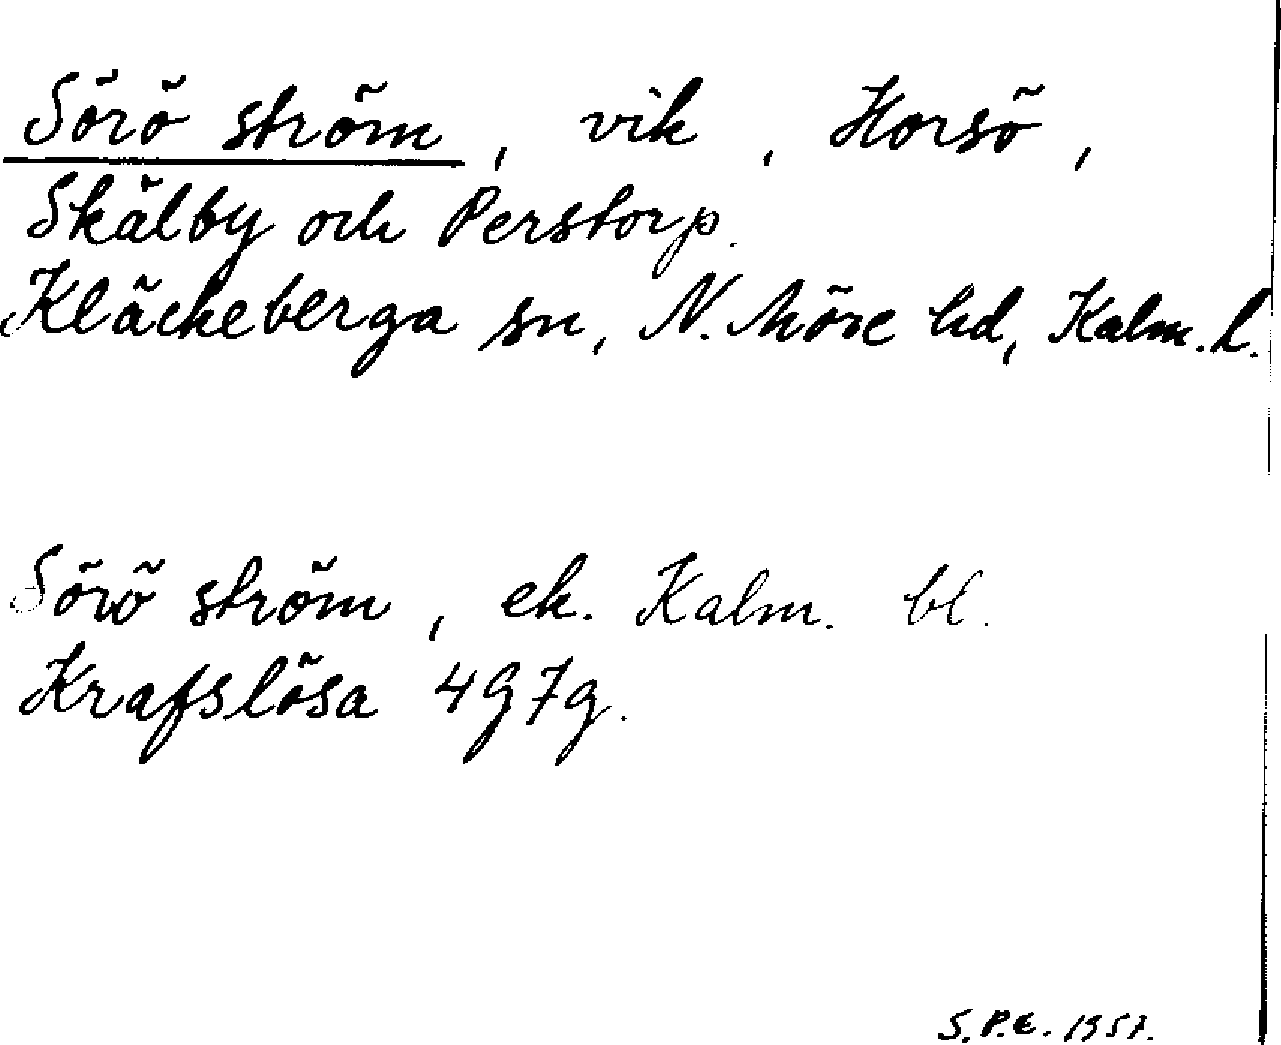 Sörö ström, vik, Horsö,
Skälby och Perstorp.
Kläckeberga sn, N. Möre hd, Kalm. l.
Sörö ström, ek. Kalm. bl.
Krafslösa 4G7g.
S.P.E. 1957.